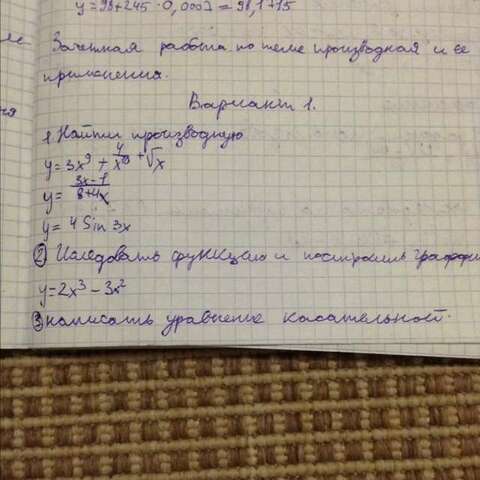 y=98+245·0,0003=98,1+15
Зачетная работа по теме производная и её
применения.
Вариант 1.
1. Найти производную
y=3x⁹+4/x⁸+√x
y=3x-7/8+4x
y=4 Sin 3x
② Иследовать функцию и построить график
y=2x³-3x²
③ написать уравнение касательной.